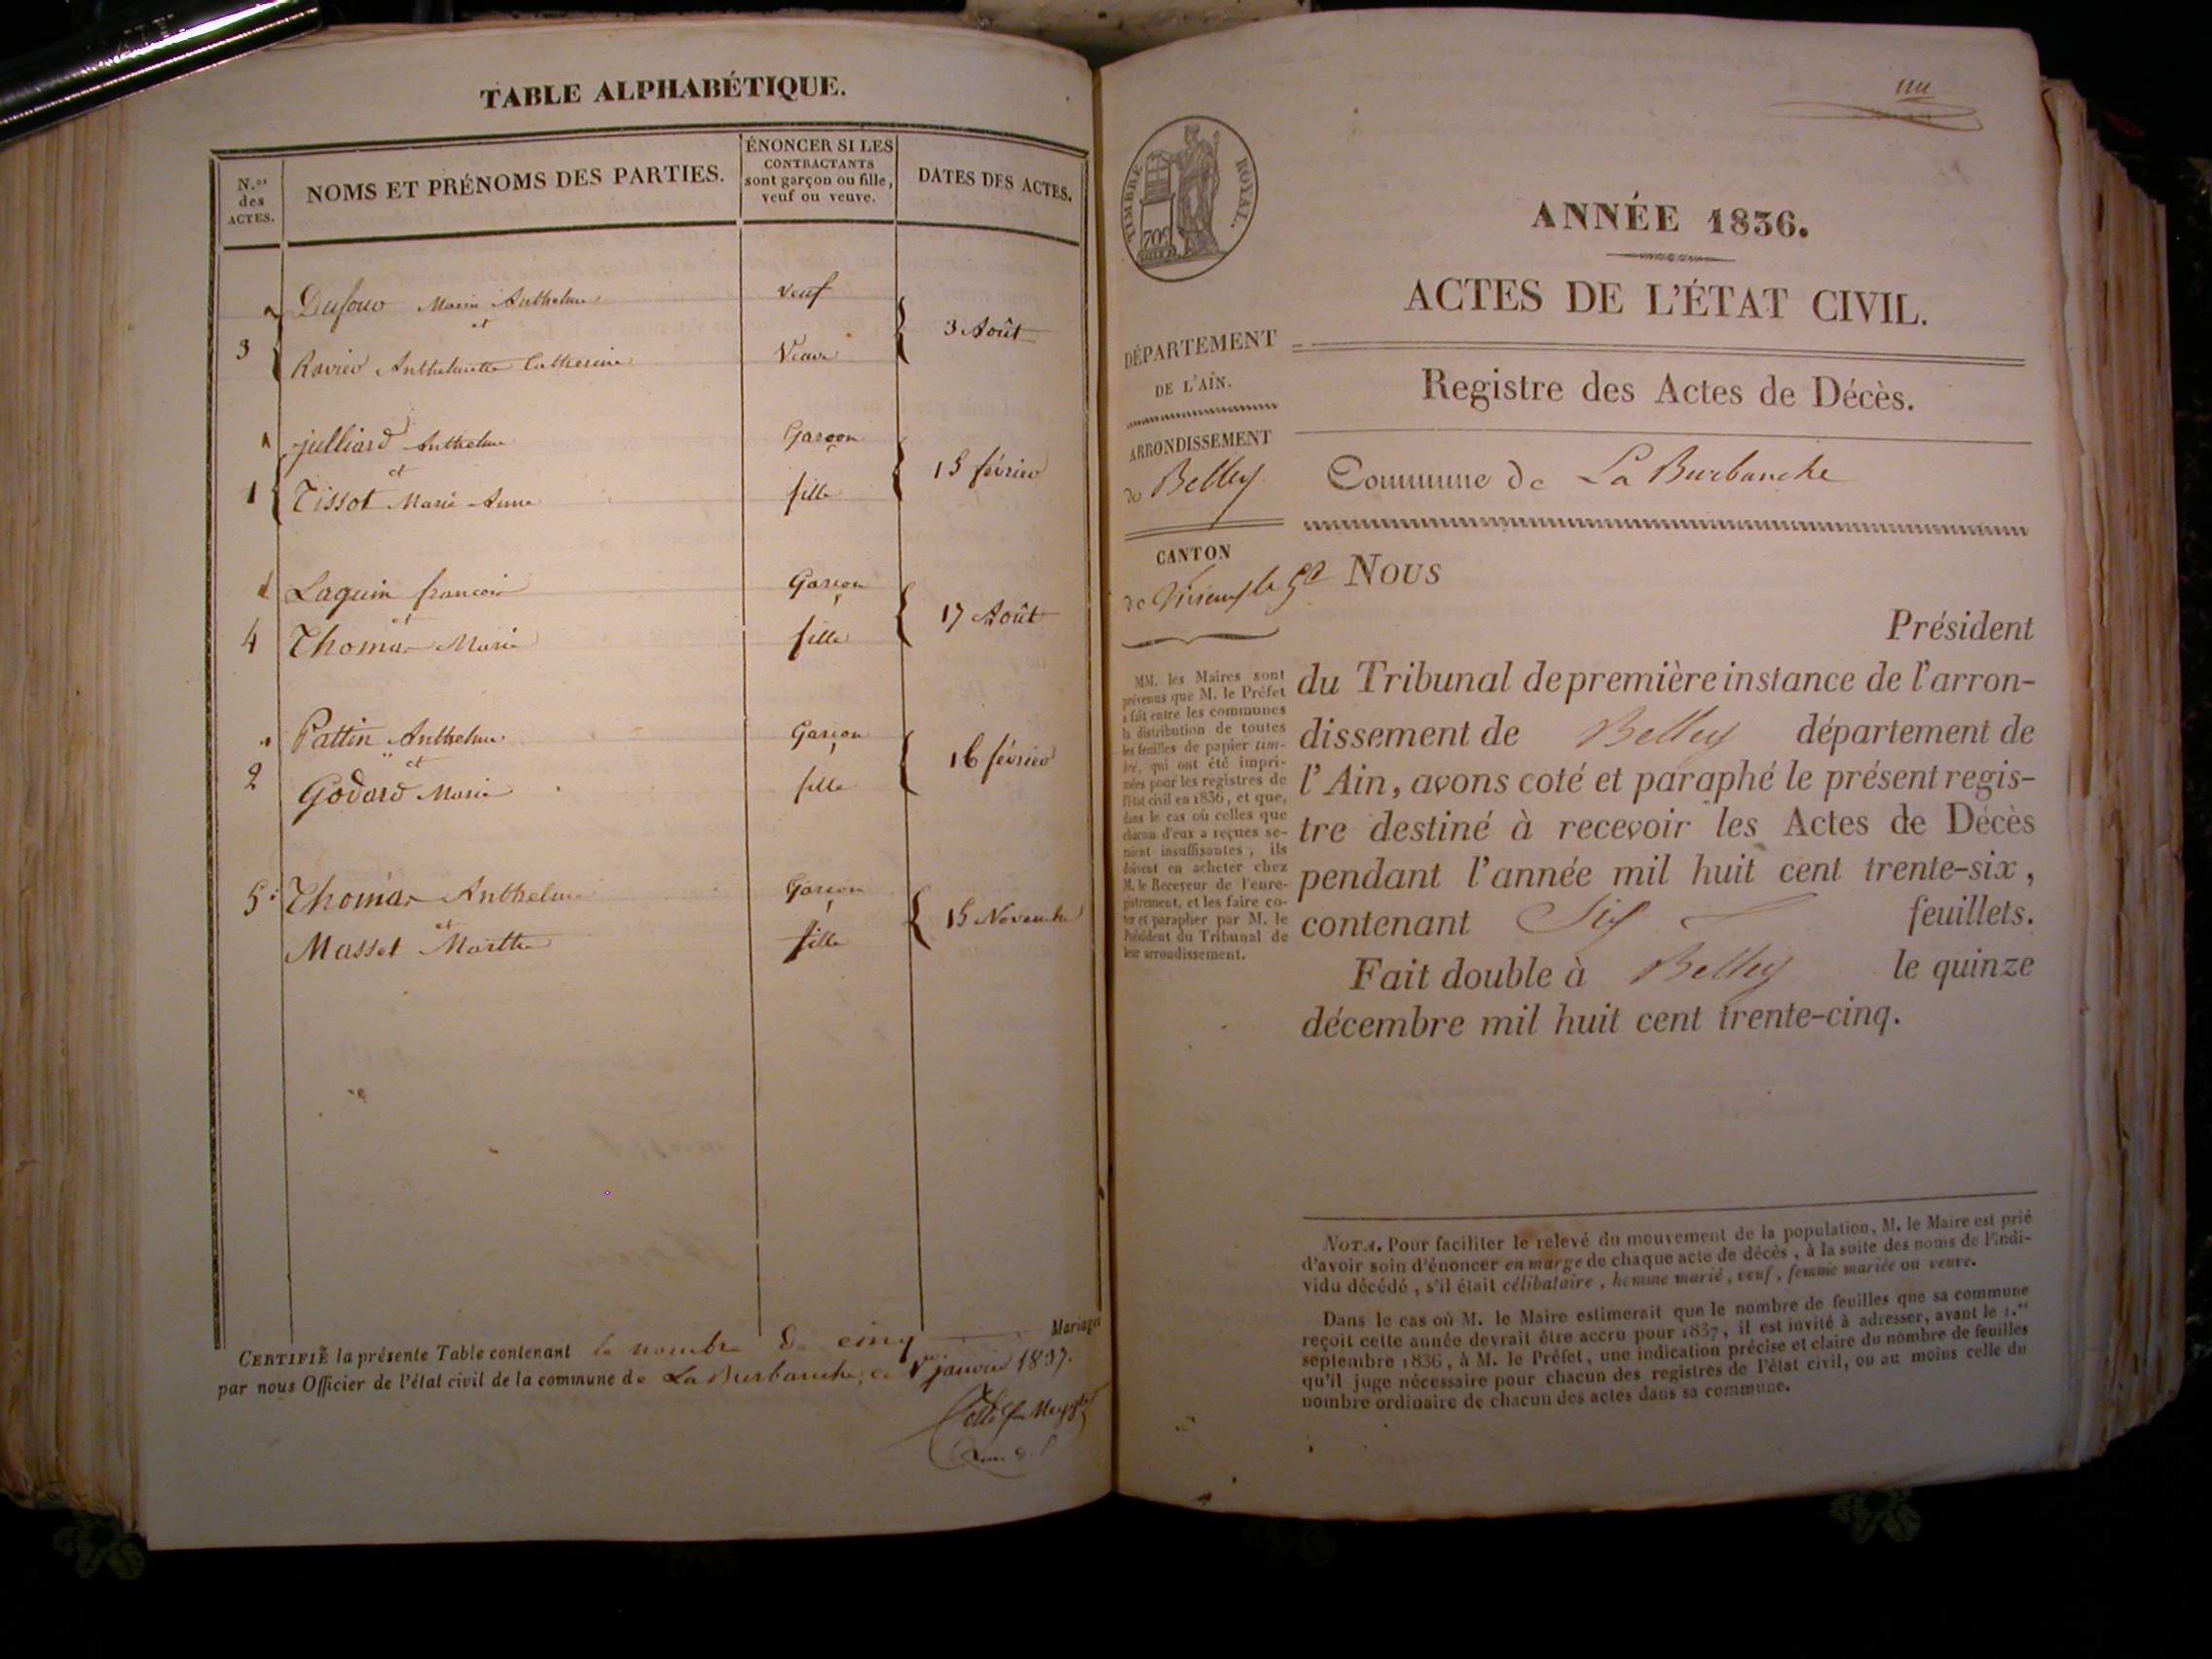 TABLE ALPHABÉTIQUE.
N.os des ACTES.
NOMS ET PRÉNOMS DES PARTIES.
ÉNONCER SI LES
CONTRACTANTS
sont garçon ou fille,
veuf ou veuve.
DATES DES ACTES.
Dufour Marin Anthelme veuf
et
3 Ravier Anthelmette Catherine Veuve 3 Août
julliard Anthelme Garçon
et
1 Tissot Marie Anne fille 15 février
Laguin françois Garçon
et
4 Thomas Marie fille 17 Août
Pattin Anthelme Garçon
et
2 Godard Marie fille 16 février
5 Thomas Anthelme Garçon
et
Masset Marthe fille 15 Novembre
CERTIFIÉ la présente Table contenant le nombre de cinq Mariages
par nous Officier de l'état civil de la commune de La Burbanche, ce 1er janvier 1837.
TIMBRE ROYAL.
70c
ANNÉE 1836.
ACTES DE L'ÉTAT CIVIL.
DÉPARTEMENT
DE L'AIN.
Registre des Actes de Décès.
ARRONDISSEMENT
de Belley
Commune de La Burbanche
CANTON
de Virieu le Gd
Nous
Président
du Tribunal de première instance de l'arron-
dissement de Belley département de
l'Ain, avons coté et paraphé le présent regis-
tre destiné à recevoir les Actes de Décès
pendant l'année mil huit cent trente-six,
contenant Six feuillets.
Fait double à Belley le quinze
décembre mil huit cent trente-cinq.
MM. les Maires sont
prévenus que M. le Préfet
a fait entre les communes
la distribution de toutes
les feuilles de papier tim-
bré, qui ont été impri-
mées pour les registres de
l'état civil en 1836, et que,
dans le cas où celles que
chacun d'eux a reçues se-
raient insuffisantes, ils
doivent en acheter chez
M. le Receveur de l'enre-
gistrement, et les faire co-
ter et parapher par M. le
Président du Tribunal de
leur arrondissement.
NOTA. Pour faciliter le relevé du mouvement de la population, M. le Maire est prié
d'avoir soin d'énoncer en marge de chaque acte de décès, à la suite des noms de l'indi-
vidu décédé, s'il était célibataire, homme marié, veuf, femme mariée ou veuve.
Dans le cas où M. le Maire estimerait que le nombre de feuilles que sa commune
reçoit cette année devrait être accru pour 1837, il est invité à adresser, avant le 1.er
septembre 1836, à M. le Préfet, une indication précise et claire du nombre de feuilles
qu'il juge nécessaire pour chacun des registres de l'état civil, ou au moins celle du
nombre ordinaire de chacun des actes dans sa commune.